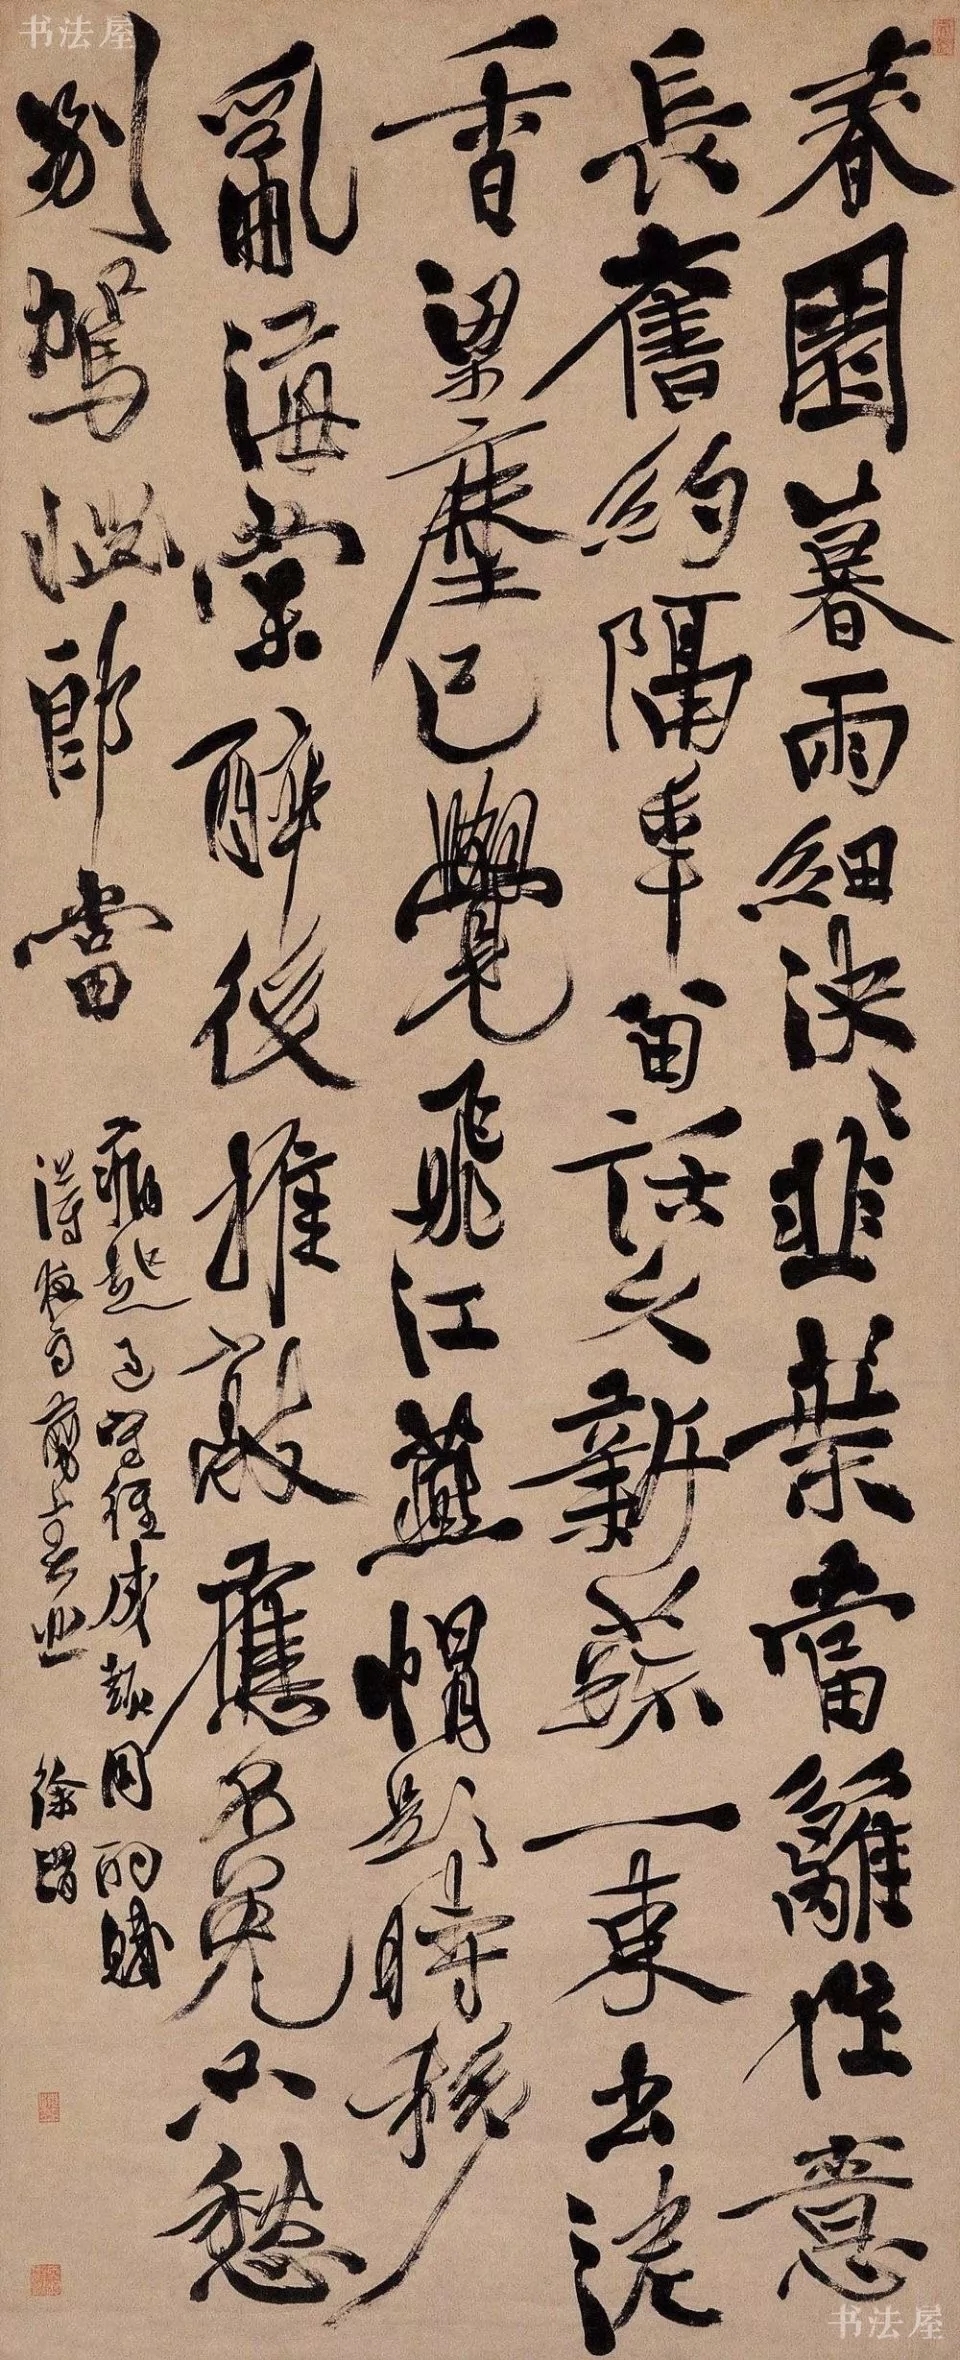 春園暮雨細泱泱韭葉當籬作意
長舊約隔年留話久新蔬一束出泥
香梁塵已覺飛江燕帽影時移
亂海棠醉後推敲應不免不愁
別駕惱郎當
雨
得夜雨剪春韭
徐渭
书法屋
书法屋